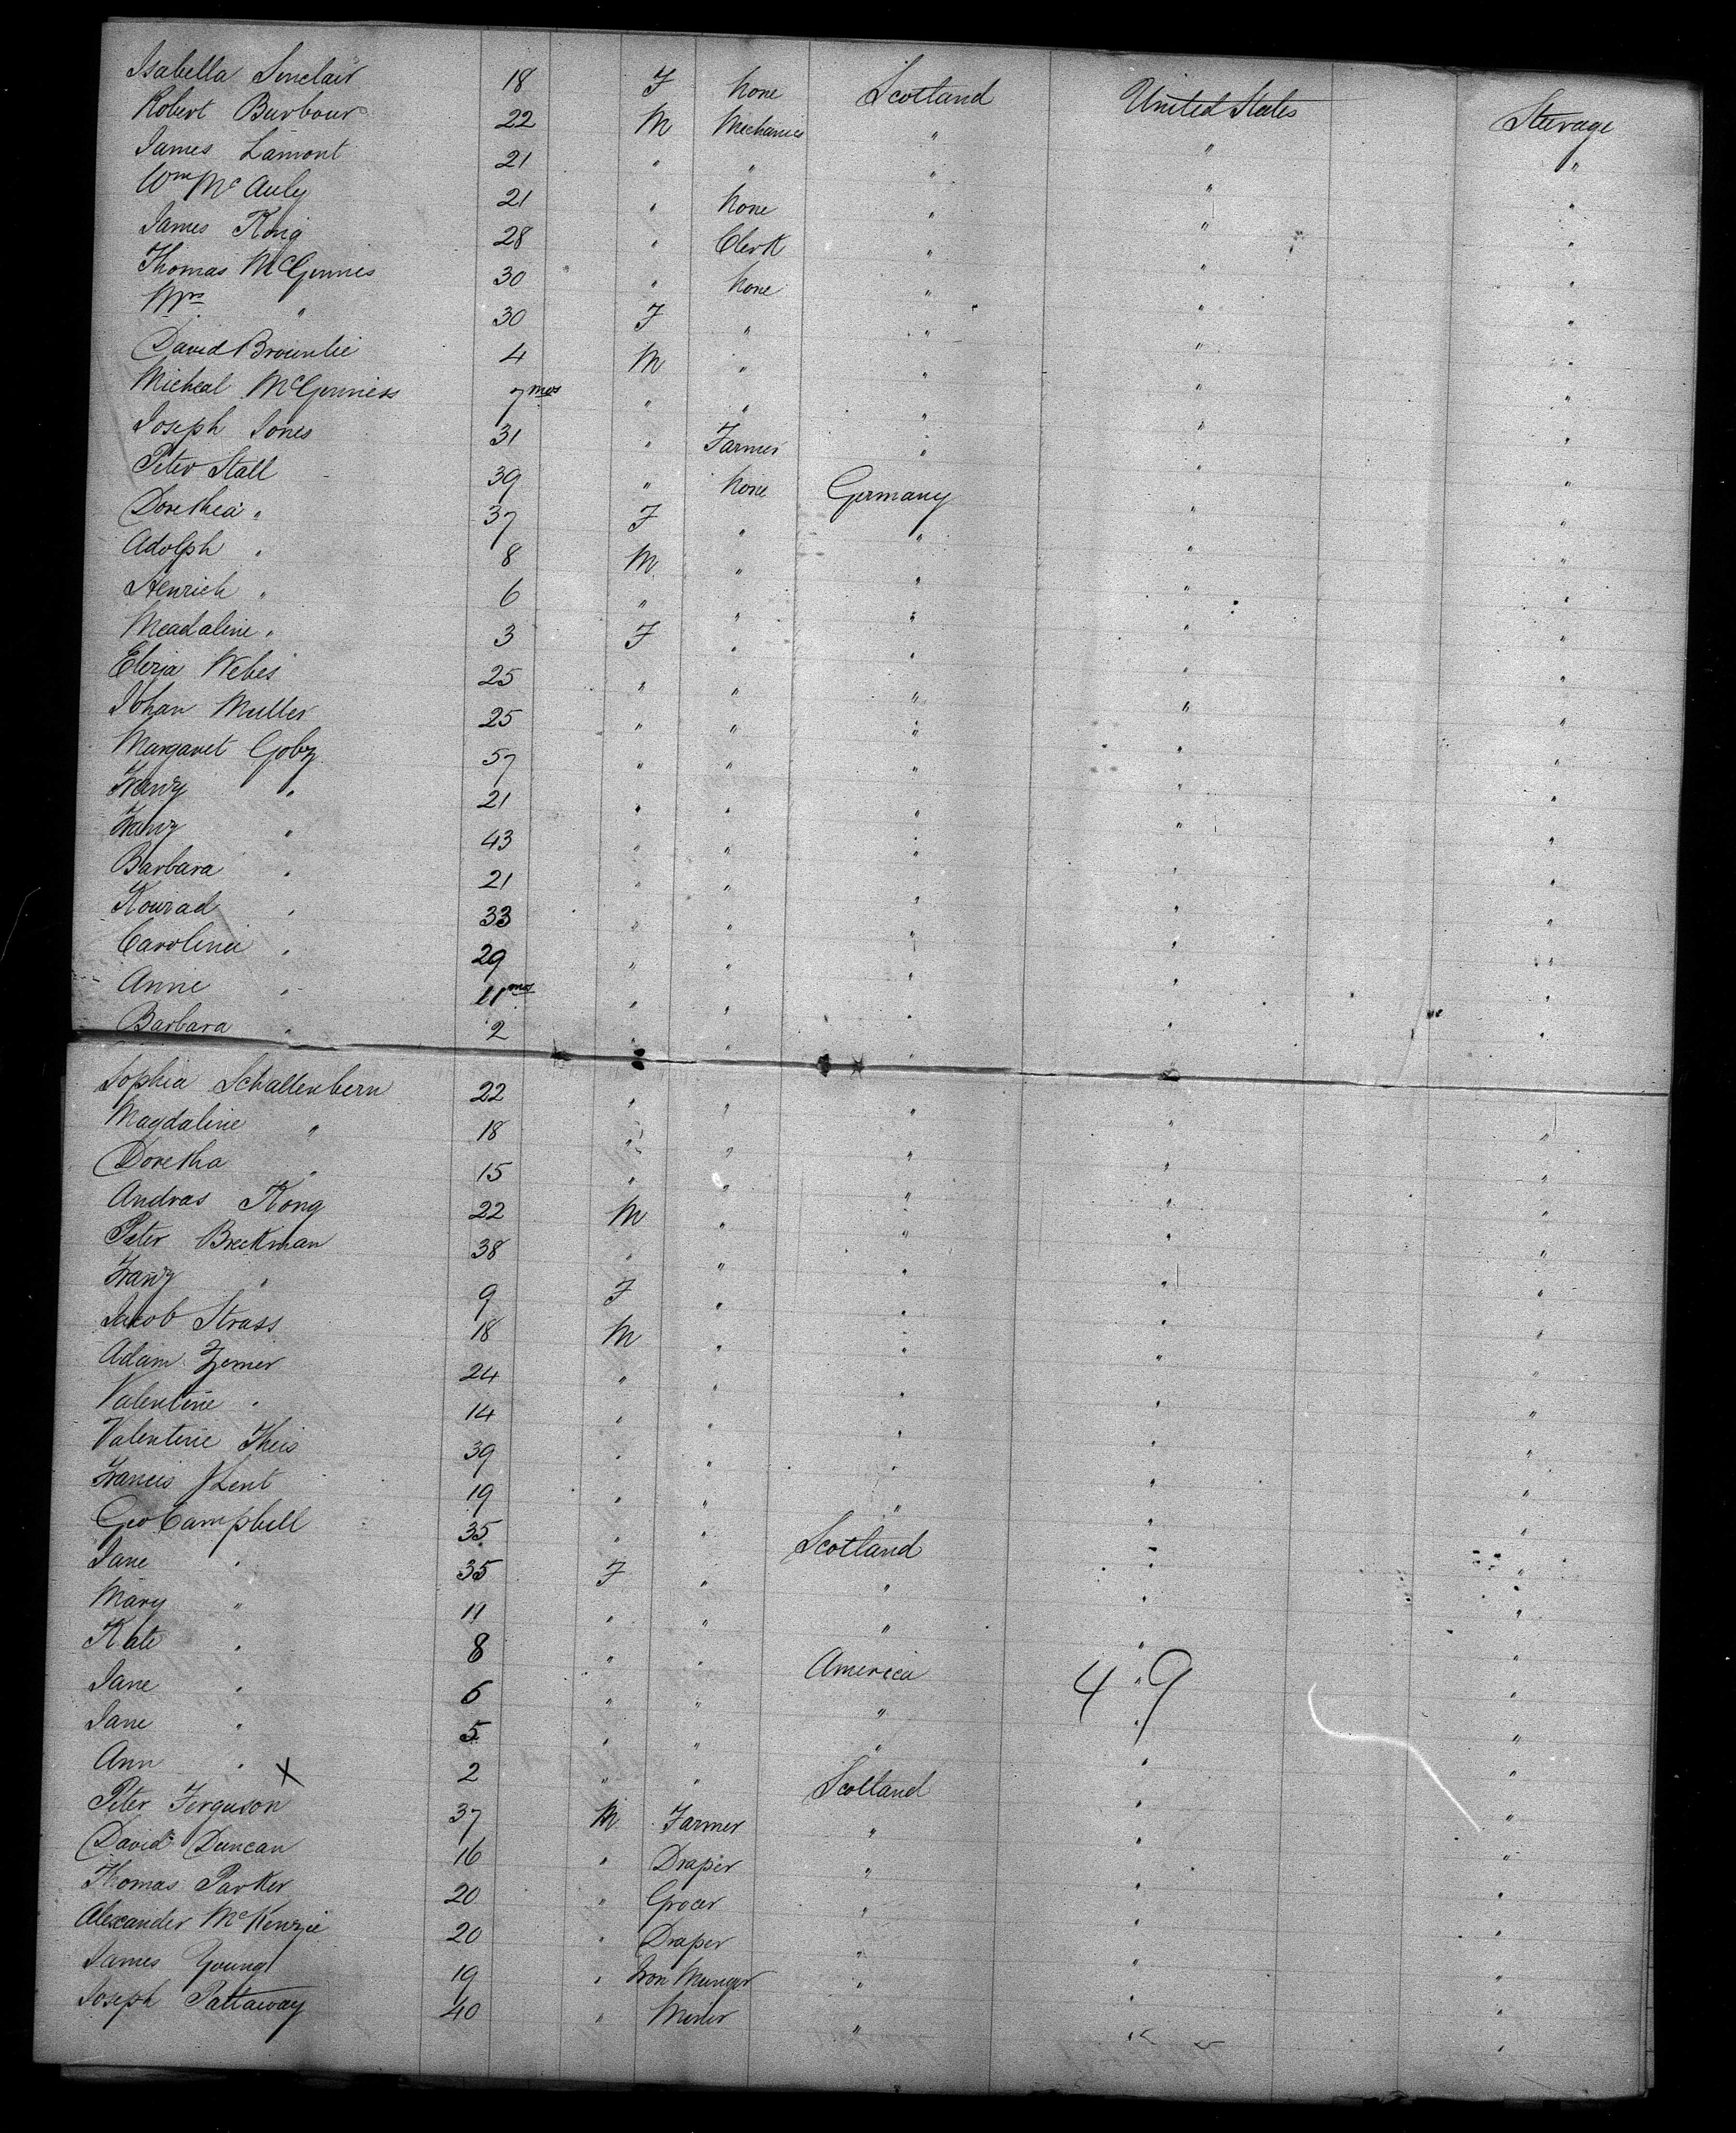 Isabella Sinclair 18 F None Scotland United States Steerage
Robert Barbour 22 M Mechanic " " "
James Lamont 21 " " " " "
Wm McAuly 21 " None " " "
James King 28 " Clerk " " "
Thomas McGinnes 30 " None " " "
Mrs " 30 F " " " "
David Brownlie 4 M " " " "
Micheal McGinness 7 mos " " " " "
Joseph Jones 31 " Farmer " " "
Peter Stall 39 " None Germany " "
Dorethea " 37 F " " " "
Adolph " 8 M " " " "
Henrich " 6 " " " " "
Meadaline " 3 F " " " "
Weber 25 " " " " "
Johan Muller 25 " " " " "
Margaret Gobz 57 " " " " "
Franz " 21 " " " " "
Franz " 43 " " " " "
Barbara " 21 " " " " "
Konrad " 33 " " " " "
Carolina " 29 " " " " "
Anne " 11 mos " " " " "
Barbara " 2 " " " " "
Sophia Schallenbern 22 " " " " "
Magdaline " 18 " " " " "
Doretha " 15 " " " " "
Andras Kong 22 M " " " "
Peter Breckman 38 " " " " "
Franz " 9 F " " " "
Jakob Strass 18 M " " " "
Adam Zemer 24 " " " " "
Valentine " 14 " " " " "
Valentine Theis 39 " " " " "
Francis Lent 19 " " " " "
Geo Campbell 35 " " Scotland " "
Jane " 35 F " " " "
Mary " 11 " " " " "
Kate " 8 " " America " "
Jane " 6 " " " " "
49
Jane " 5 " " " " "
Ann " X 2 " " Scotland " "
Peter Ferguson 37 M Farmer " " "
David Duncan 16 " Draper " " "
Thomas Parker 20 " Grocer " " "
Alexander McKenzie 20 " Draper " " "
James Young 19 " Iron Munger " " "
Joseph Pattaway 40 " " " "